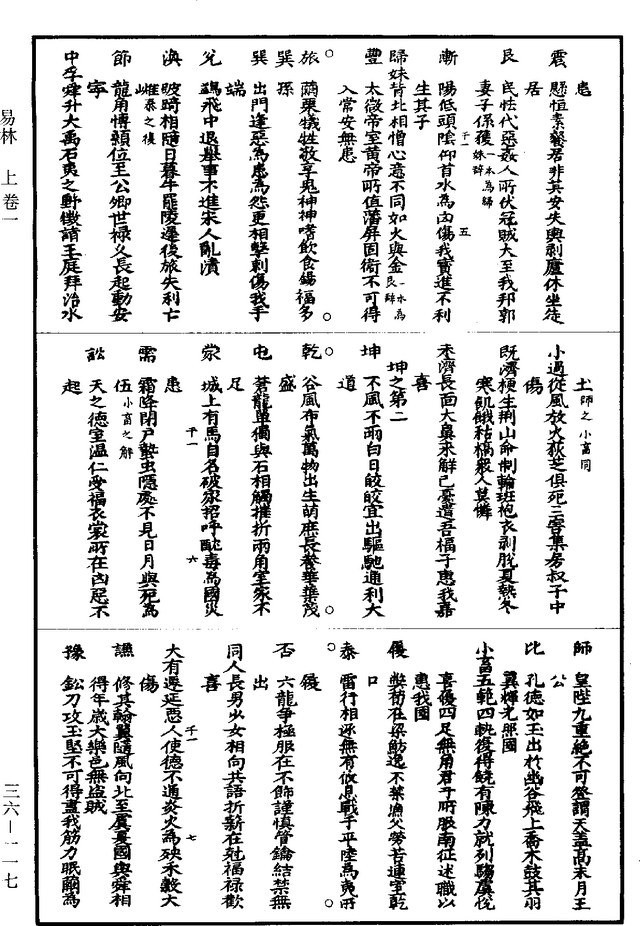 易林　上　卷一
三六—二一七
患
震　懸恒素餐居非其安失輿剥廬休坐徒
居
艮　民怯代惡姦人所伏寇賊大至我邦郭
妻子係獲一本為歸妹辭
漸　陽低頭陰仰首水為凶傷我寶進不利
生其子
歸妹背北相憎心意不同如火與金一本為艮辭
豐　太微帝室黄帝所值藩屏固衛不可得
入常安無患
旅　繭栗犧牲敬享鬼神神嗜飲食錫福多
孫
巽　出門逢惡為患為怨更相擊刺傷我手
端
兌　鷁飛中退舉事不進宋人亂潰
渙　跛踦相隨日暮牛罷陵遲後旅失利亡
雌泰之復
節　龍角博顙位至公卿世禄父長起動安
寧
中孚舜升大禹石夷之野徵詣王庭拜治水
土師之小畜同
小過從風放火荻芝俱死三害集房叔子中
傷
既濟梗生荆山命制輸班袍衣剥脱夏熱冬
寒飢餓枯槁衆人莫憐
未濟長面大鼻來解己憂遺吾福子惠我嘉
喜
坤之第二
坤　不風不雨白日皎皎宜出驅馳通利大
道
乾　谷風布氣萬物出生萌庶長養華葉茂
盛
屯　蒼龍單獨與石相觸摧折兩角室家不
足
蒙　城上有烏自名破家招呼酖毒為國災
患
需　霜降閉户蟄虫隱處不見日月與死為
伍小畜之解
訟　天之德室温仁受福衣裳所在凶惡不
起
師　皇陛九重絶不可登謂天蓋高未見王
公
比　孔德如玉出於幽谷飛上喬木鼓其羽
翼輝光照國
小畜五範四軌復得饒有陳力就列騶虞悦
喜
履　四足無角君子所服南征述職以
惠我國
泰　雷行相逐無有休息戰于平陸為夷所
覆
否　六龍爭極服在下飾謹慎管鑰結禁無
出
同人長男少女相向共語折薪在冠福禄歡
喜
大有遲延惡人使德不通炎火為殃禾穀大
傷
謙　修其翰翼隨風向北至虞夏國與舜相
得年歲大樂邑無盜賊
豫　鈆刀攻玉堅不可得盡我筋力胝繭為